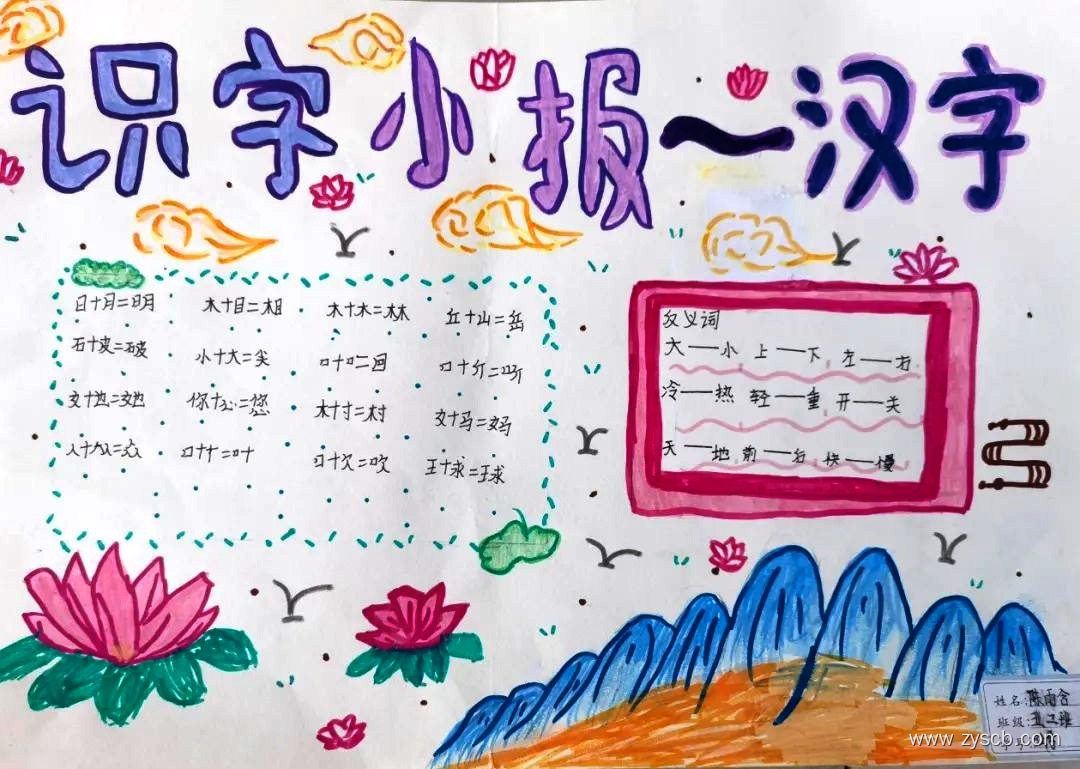 识字小报～汉字
日+月=明 木+目=相 木+木=林 丘+山=岳
石+皮=破 小+大=尖 口+口=回 口+斤=听
女+也=她 你+心=您 木+寸=村 女+马=妈
人+从=众 口+十=叶 口+欠=吹 王+求=球
反义词
大——小 上——下 左——右
冷——热 轻——重 开——关
天——地 前——后 快——慢
姓名:陈雨含
班级:
www.zyscb.com